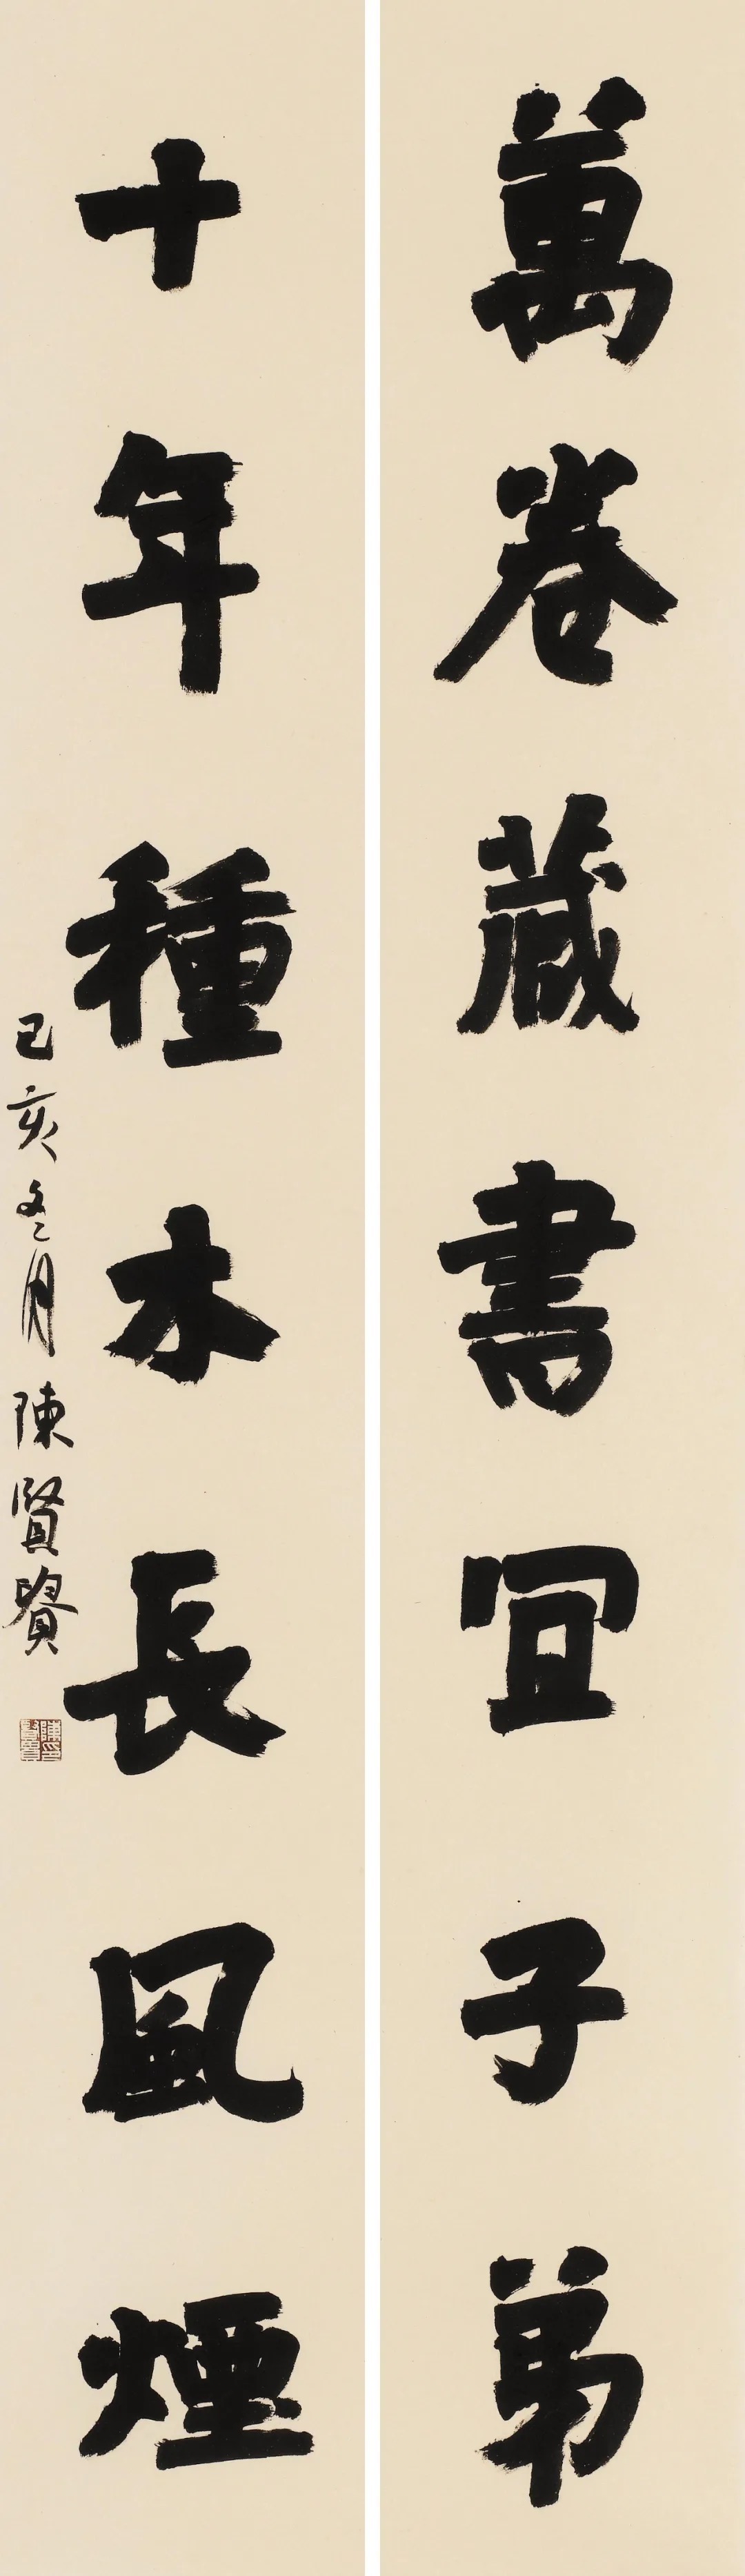 萬卷藏書宜子弟
十年種木長風煙
己亥冬月陳賢賚